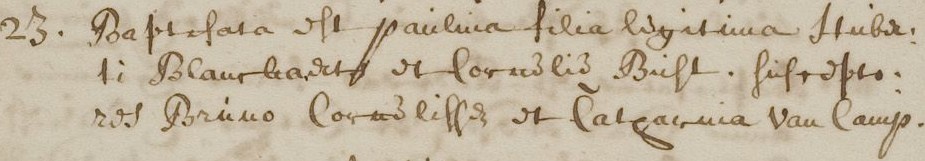 23. Baptisata est paulina filia legitima Huber:
ti Blanckaert et Cornelie Buist. suscepto:
res Bruno Cornelissen et Catharina van Camp.